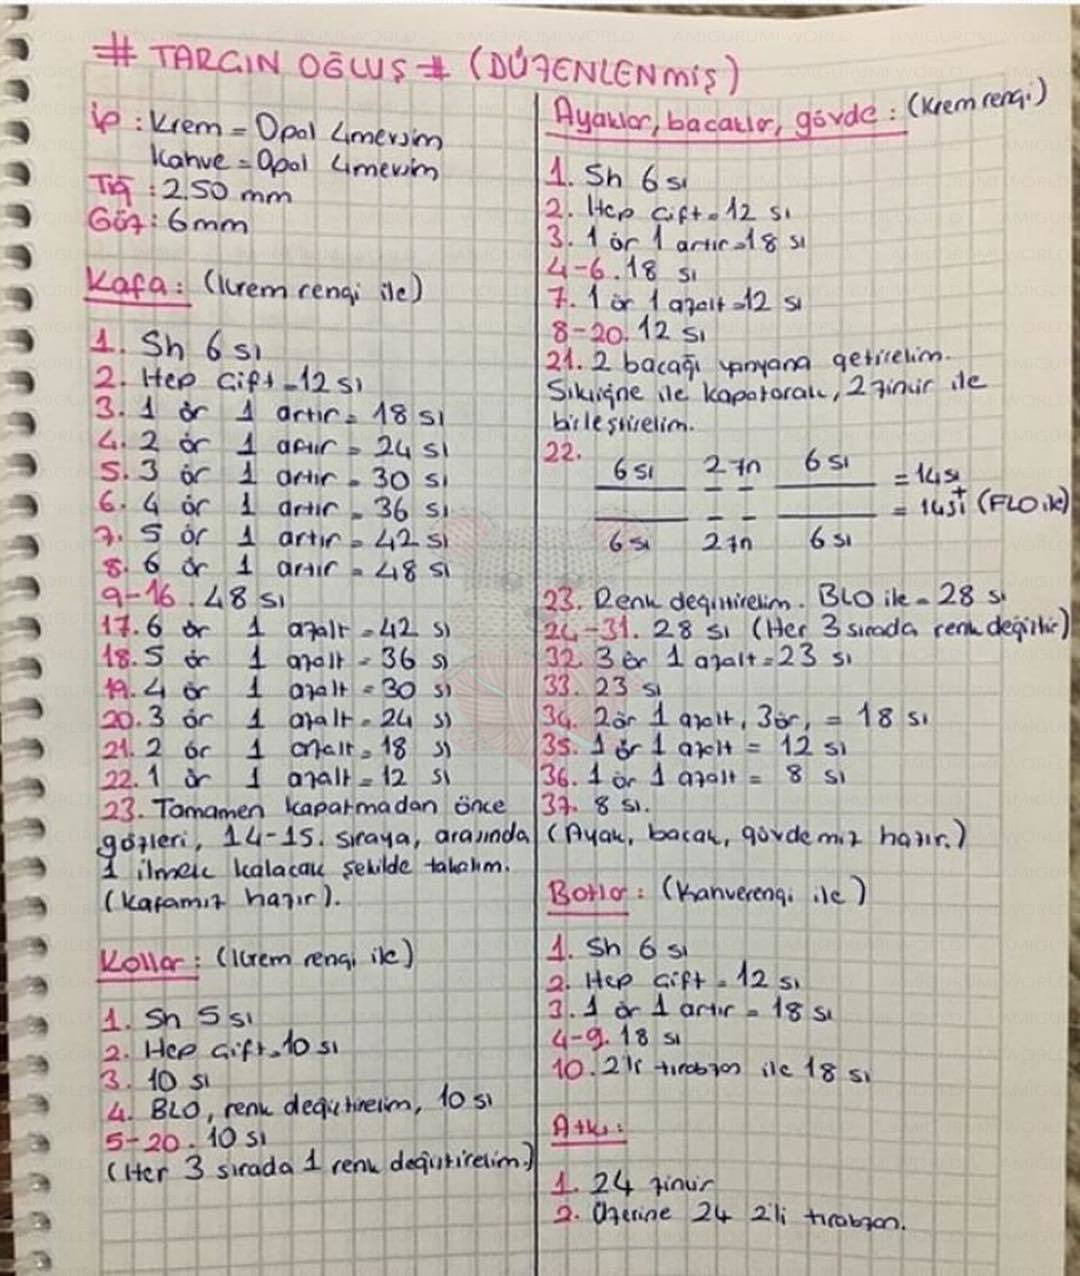 # TARÇIN OĞLUŞ # (DÜZENLENMİŞ)
İp : Krem = Opal 4mevsim
Kahve = Opal 4mevsim
Tığ : 2.50 mm
Göz : 6mm
Kafa : (Krem rengi ile)
1. Sh 6 sı
2. Hep çift = 12 sı
3. 1 ör 1 artır = 18 sı
4. 2 ör 1 artır = 24 sı
5. 3 ör 1 artır = 30 sı
6. 4 ör 1 artır = 36 sı
7. 5 ör 1 artır = 42 sı
8. 6 ör 1 artır = 48 sı
9-16. 48 sı
17. 6 ör 1 azalt = 42 sı
18. 5 ör 1 azalt = 36 sı
19. 4 ör 1 azalt = 30 sı
20. 3 ör 1 azalt = 24 sı
21. 2 ör 1 azalt = 18 sı
22. 1 ör 1 azalt = 12 sı
23. Tamamen kapatmadan önce
gözleri, 14-15. sıraya, arasında
1 ilmek kalacak şekilde takalım.
(Kafamız hazır).
Kollar : (Krem rengi ile)
1. Sh 5 sı
2. Hep çift = 10 sı
3. 10 sı
4. BLO, renk değiştirelim, 10 sı
5-20. 10 sı
(Her 3 sırada 1 renk değiştirelim.)
Ayaklar, bacaklar, gövde : (Krem rengi)
1. Sh 6 sı
2. Hep çift = 12 sı
3. 1 ör 1 artır = 18 sı
4-6. 18 sı
7. 1 ör 1 azalt = 12 sı
8-20. 12 sı
21. 2 bacağı yanyana getirelim.
Sıkiğne ile kapatarak, 2 zinir ile
birleştirelim.
22. 6 sı 2 zn 6 sı = 14 sı
+
6 sı 2 zn 6 sı = 14 sı (FLO ile)
23. Renk değiştirelim. BLO ile = 28 sı
24-31. 28 sı (Her 3 sırada renk değiştir)
32. 3 ör 1 azalt = 23 sı
33. 23 sı
34. 2 ör 1 azalt, 3 ör, = 18 sı
35. 1 ör 1 azalt = 12 sı
36. 1 ör 1 azalt = 8 sı
37. 8 sı.
(Ayak, bacak, gövdemiz hazır.)
Botlar : (Kahverengi ile)
1. Sh 6 sı
2. Hep çift = 12 sı
3. 1 ör 1 artır = 18 sı
4-9. 18 sı
10. 2li tırabzan ile 18 sı
Atkı :
1. 24 zinir
2. Üzerine 24 2'li tırabzan.